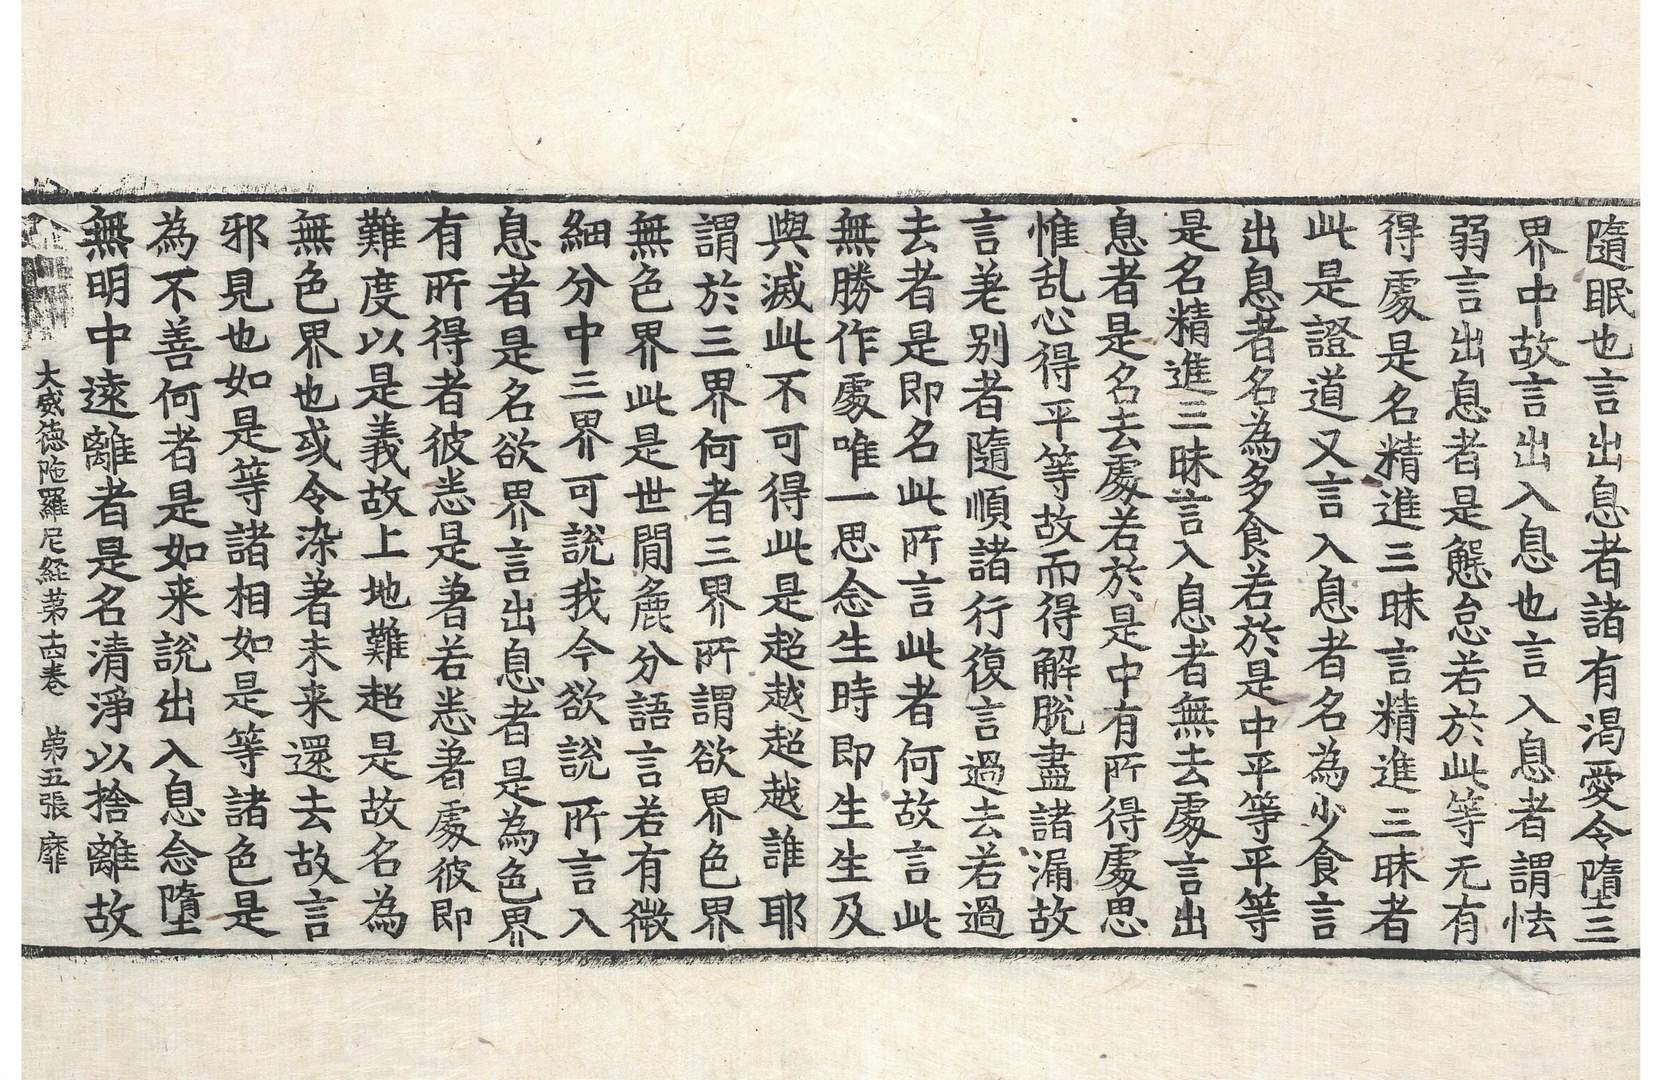 隨眠也言出息者諸有渴愛令墮三
界中故言出入息也言入息者謂怯
弱言出息者是懈怠若於此等无有
得處是名精進三昧言精進三昧者
此是證道又言入息者名為少食言
出息者名為多食若於是中平等平等
是名精進三昧言入息者無去處言出
息者是名去處若於是中有所得處思
惟乱心得平等故而得解脫盡諸漏故
言差別者隨順諸行復言過去若過
去者是即名此所言此者何故言此
無勝作處唯一思念生時即生生及
與滅此不可得此是超越超越誰耶
謂於三界何者三界所謂欲界色界
無色界此是世間麁分語言若有微
細分中三界可說我今欲說所言入
息者是名欲界言出息者是為色界
有所得者彼恙是著若恙著處彼即
難度以是義故上地難超是故名為
無色界也或令染著未来還去故言
邪見也如是等諸相如是等諸色是
為不善何者是如来說出入息念墮
無明中遠離者是名清淨以捨離故
大威德陁羅尼経苐十四卷 苐五張 靡